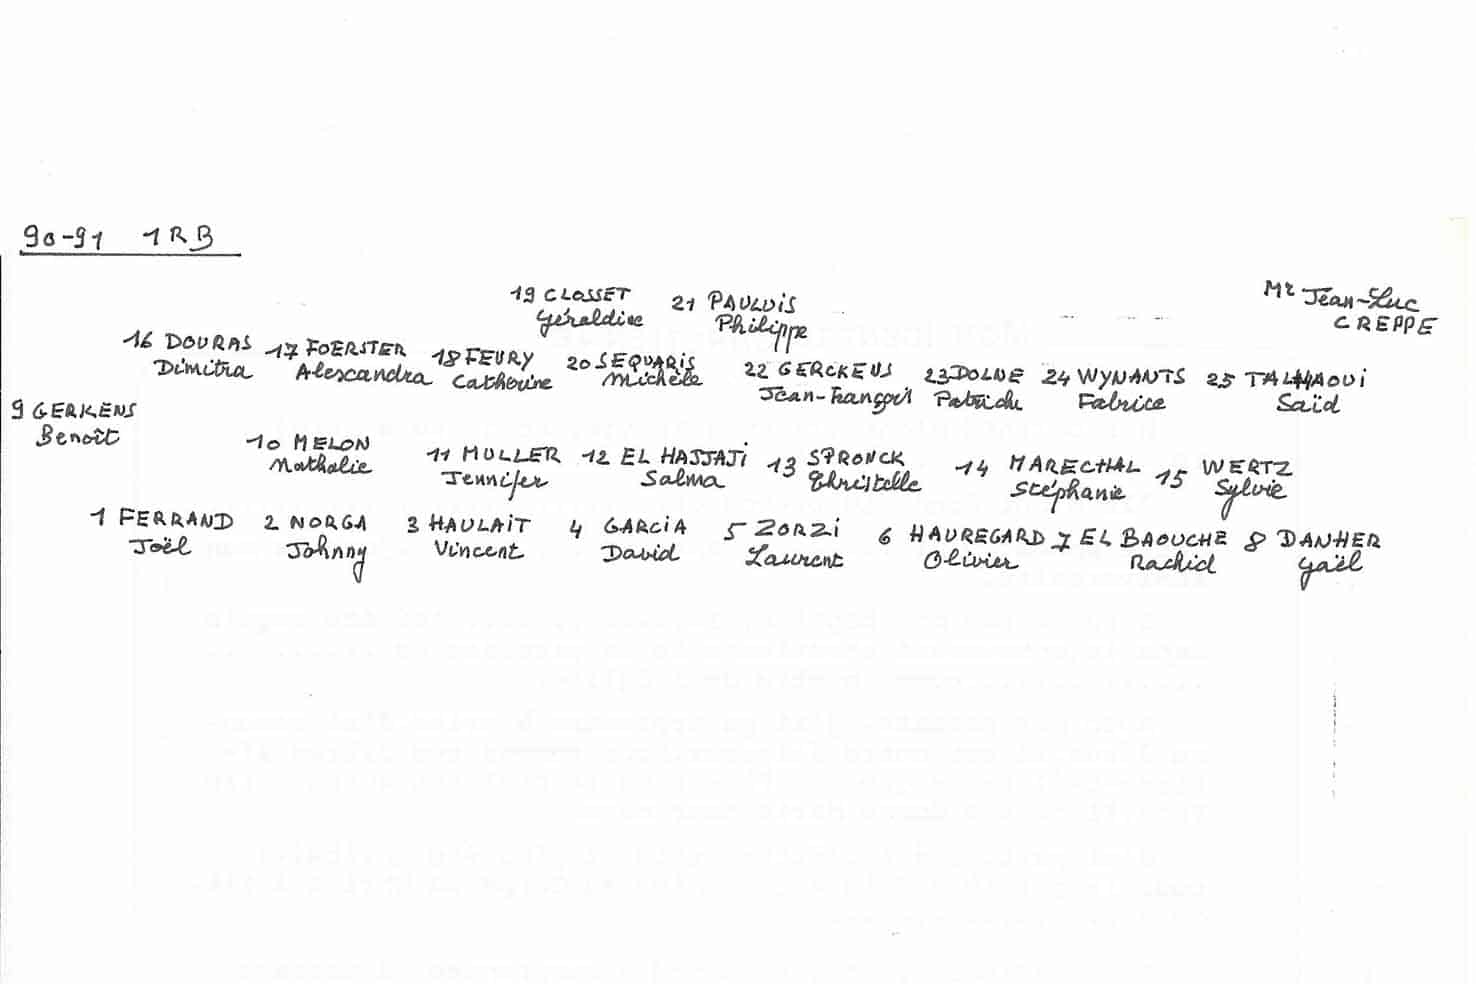 90-91 1RB
19 CLOSSET 21 PAULUIS Mr Jean-Luc
Géraldine Philippe CREPPE
16 DOURAS 17 FOERSTER 18 FEURY 20 SEQUARIS 22 GERCKENS 23 DOLNE 24 WYNANTS 25 TALHAOUI
Dimitra Alexandra Catherine Michèle Jean-François Patrick Fabrice Saïd
9 GERKENS
Benoît
10 MELON 11 MULLER 12 EL HAJJAJi 13 SPRONCK 14 MARECHAL 15 WERTZ
Nathalie Jennifer Salma Christelle Stéphanie Sylvie
1 FERRAND 2 NORGA 3 HAULAiT 4 GARCiA 5 ZORZi 6 HAUREGARD 7 EL BAOUCHE 8 DANHER
Joël Johnny Vincent David Laurent Olivier Rachid Gaël